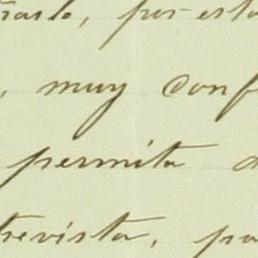 por esta
, muy conf
permita
trevista, pa